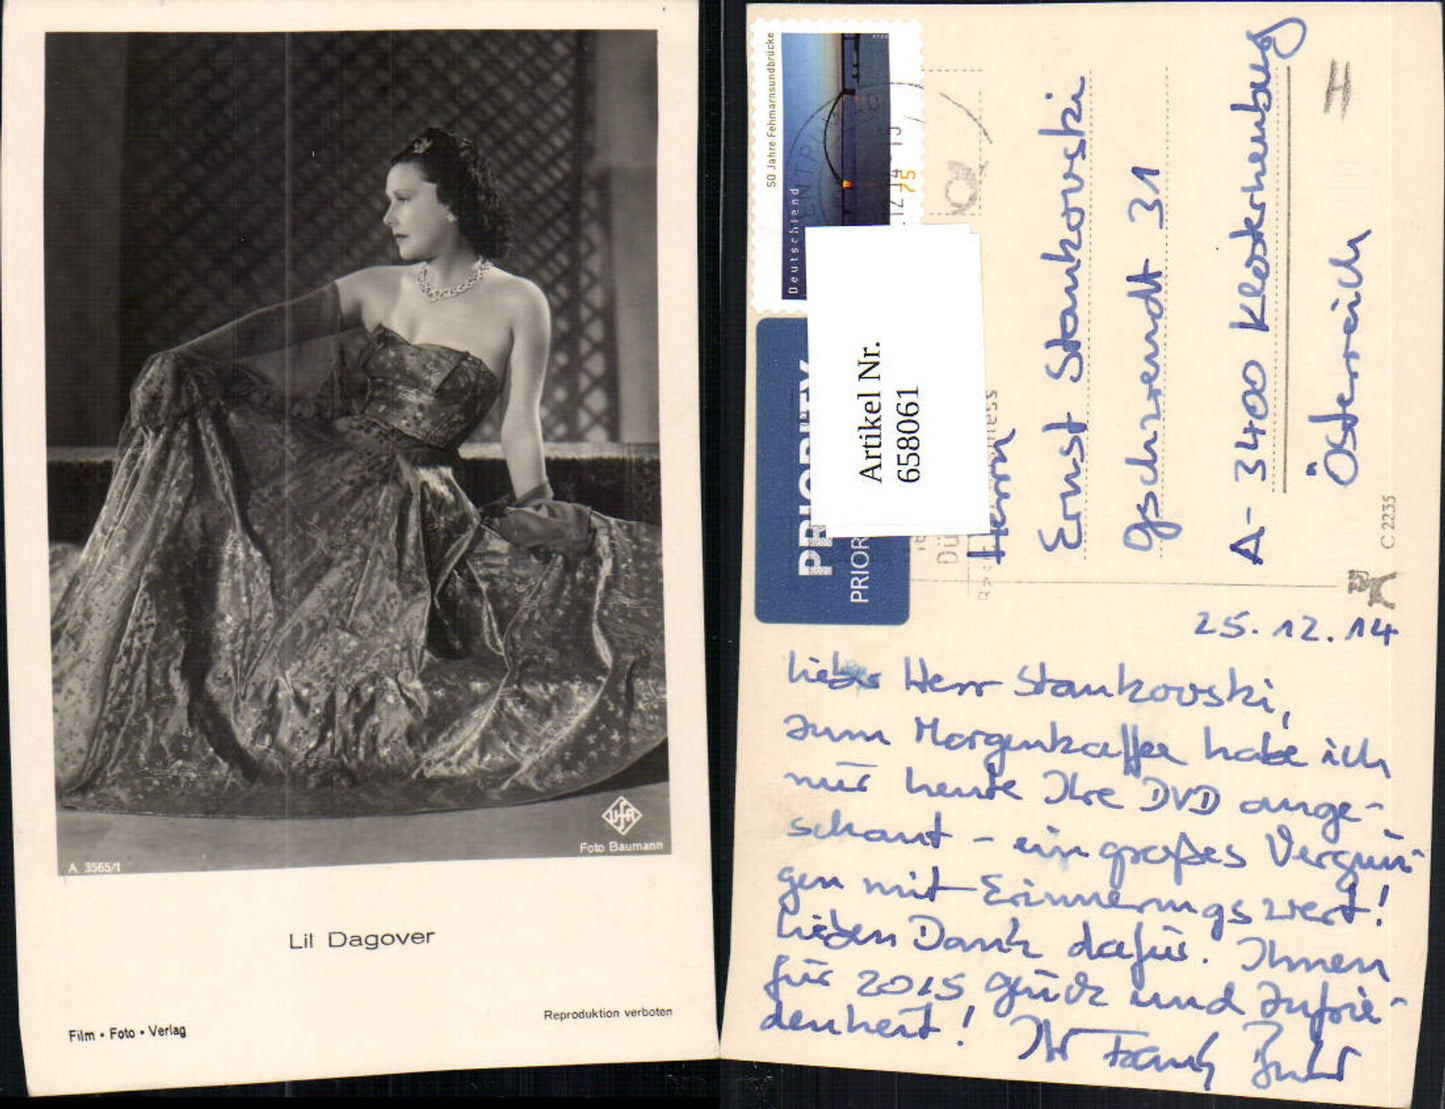 UFA
Foto Baumann
A 3565/1
Lil Dagover
Reproduktion verboten
Film • Foto • Verlag
50 Jahre Fehmarnsundbrücke
Deutschland
75
PRIORITY
PRIOR
Artikel Nr.
658061
Herrn
Ernst Stankovski
Gschwendt 31
A-3400 Klosterneuburg
Österreich
H
C 2235
25.12.14
Lieber Herr Stankovski,
zum Morgenkaffee habe ich
mir heute Ihre DVD ange-
schaut – ein großes Vergnü-
gen mit Erinnerungswert!
Lieben Dank dafür. Ihnen
für 2015 Glück und Zufrie-
denheit! Ihr Frank